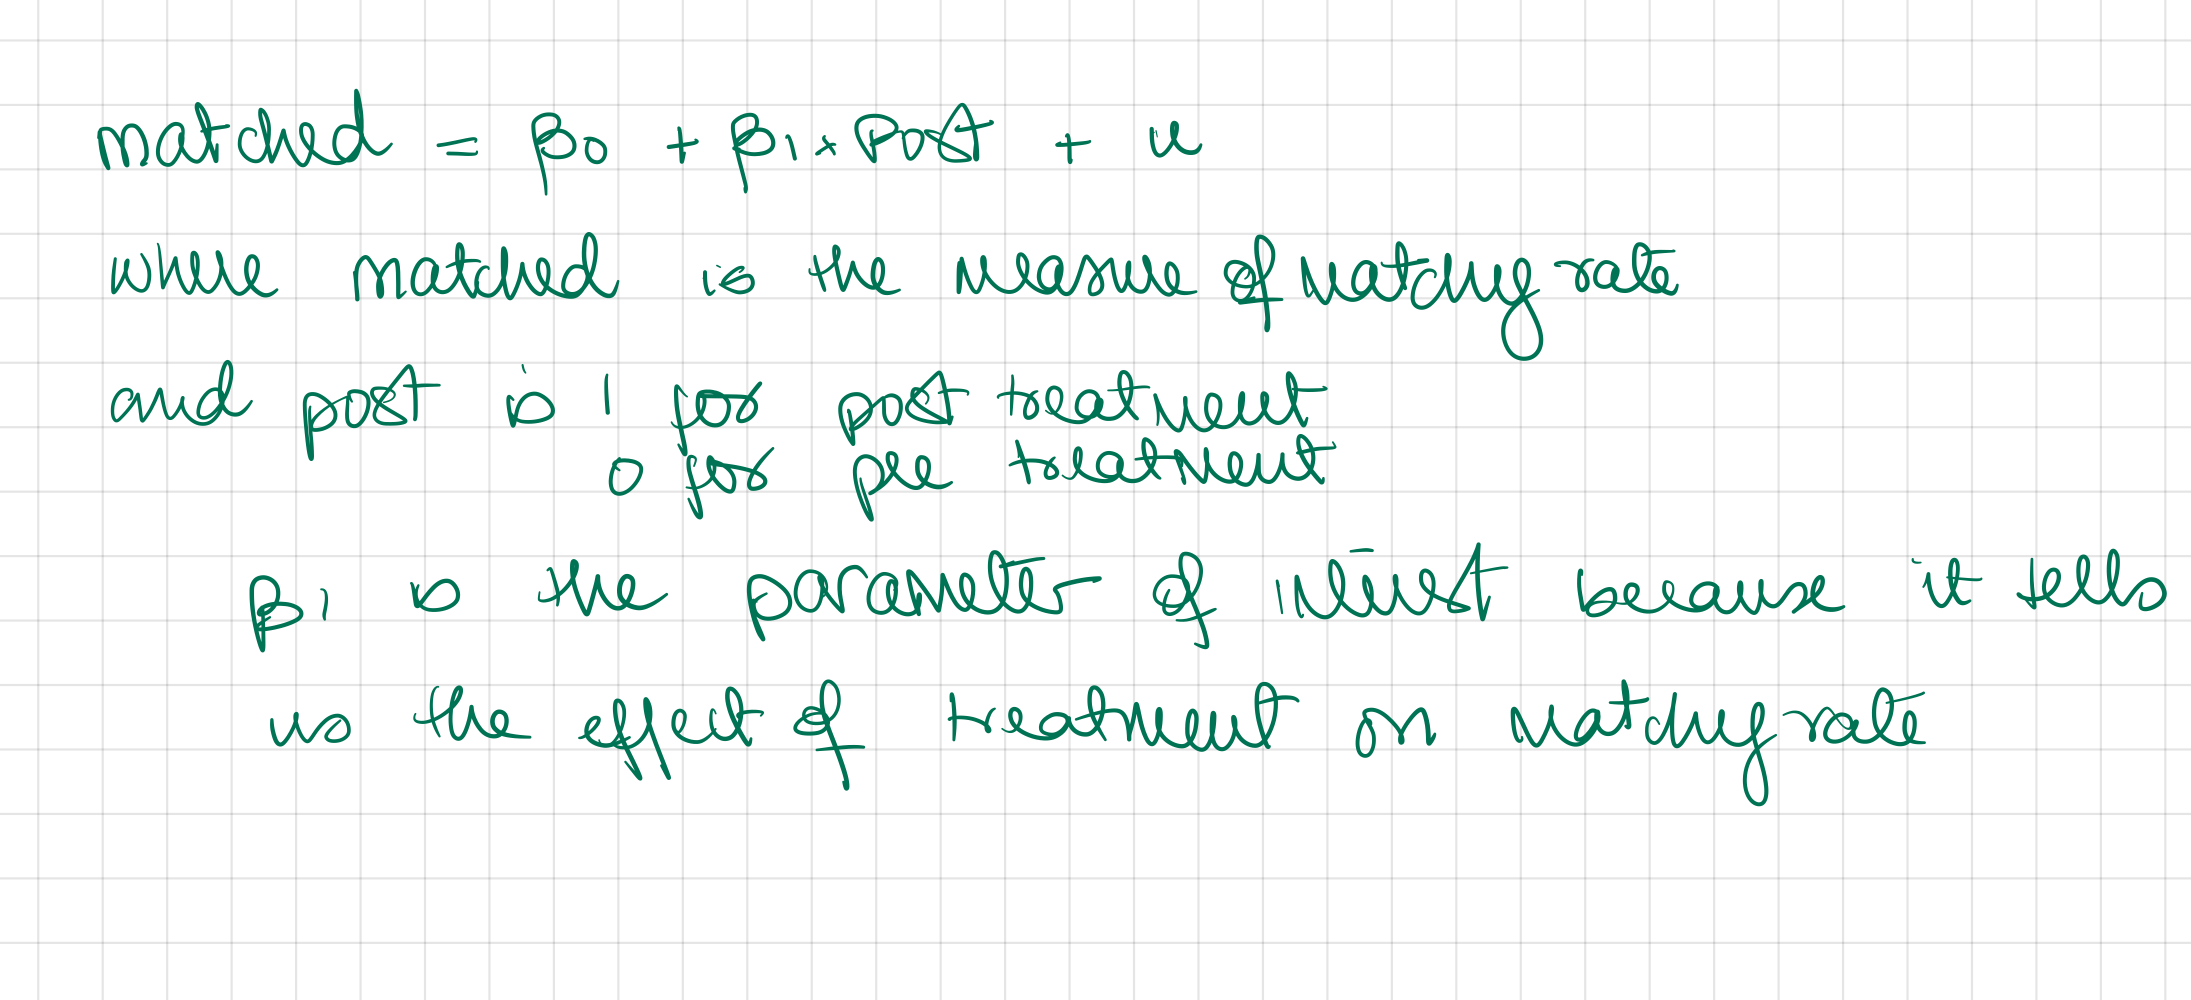 matched = β0 + β1 × Post + u
where matched is the measure of matching rate
and post is 1 for post treatment
0 for pre treatment
β1 is the parameter of interest because it tells
us the effect of treatment on matching rate